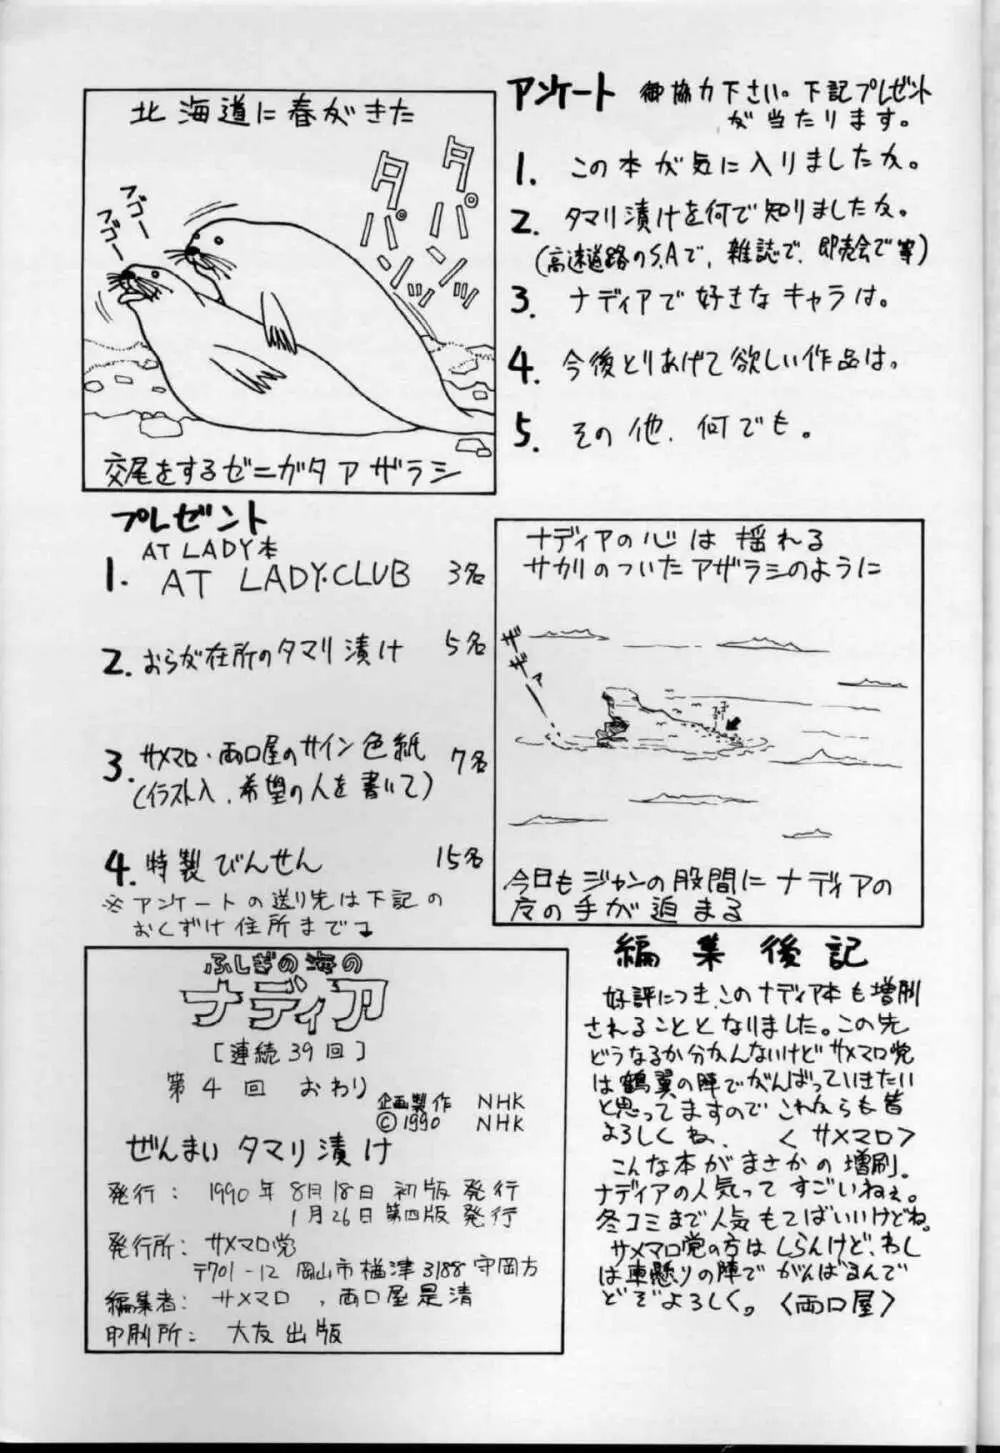 北海道に春がきた
タパンッ
タパンッ
フゴー
フゴー
交尾をするゼニガタアザラシ
アンケート 御協力下さい。下記プレゼント
が当たります。
1. この本が気に入りましたか。
2. タマリ漬けを何で知りましたか。
(高速道路のS.Aで、雑誌で、即売会で等)
3. ナディアで好きなキャラは。
4. 今後とりあげて欲しい作品は。
5. その他、何でも。
プレゼント
AT LADY本
1. AT LADY.CLUB 3名
2. おらが在所のタマリ漬け 5名
3. サメマロ・両口屋のサイン色紙 7名
(イラスト入、希望の人を書いて)
4. 特製びんせん 15名
※アンケートの送り先は下記の
おくずけ住所まで
ナディアの心は揺れる
サカリのついたアザラシのように
ザザァ
今日もジャンの股間にナディアの
夜の手が迫まる
ふしぎの海の
ナディア
[連続39回]
第4回 おわり
企画製作 NHK
©1990 NHK
ぜんまいタマリ漬け
発行: 1990年8月18日 初版発行
1月26日 第四版発行
発行所: サメマロ党
〒701-12 岡山市楢津3188 守岡方
編集者: サメマロ、両口屋是清
印刷所: 大友出版
編集後記
好評につき、このナディア本も増刷
されることとなりました。この先
どうなるか分かんないけどサメマロ党
は鶴翼の陣でがんばっていきたい
と思ってますのでこれからも皆
よろしくね、 <サメマロ>
こんな本がまさかの増刷。
ナディアの人気ってすごいねぇ。
冬コミまで人気もてばいいけどね。
サメマロ党の方はしらんけど、わし
は車懸りの陣でがんばるんで
どぞよろしく。<両口屋>